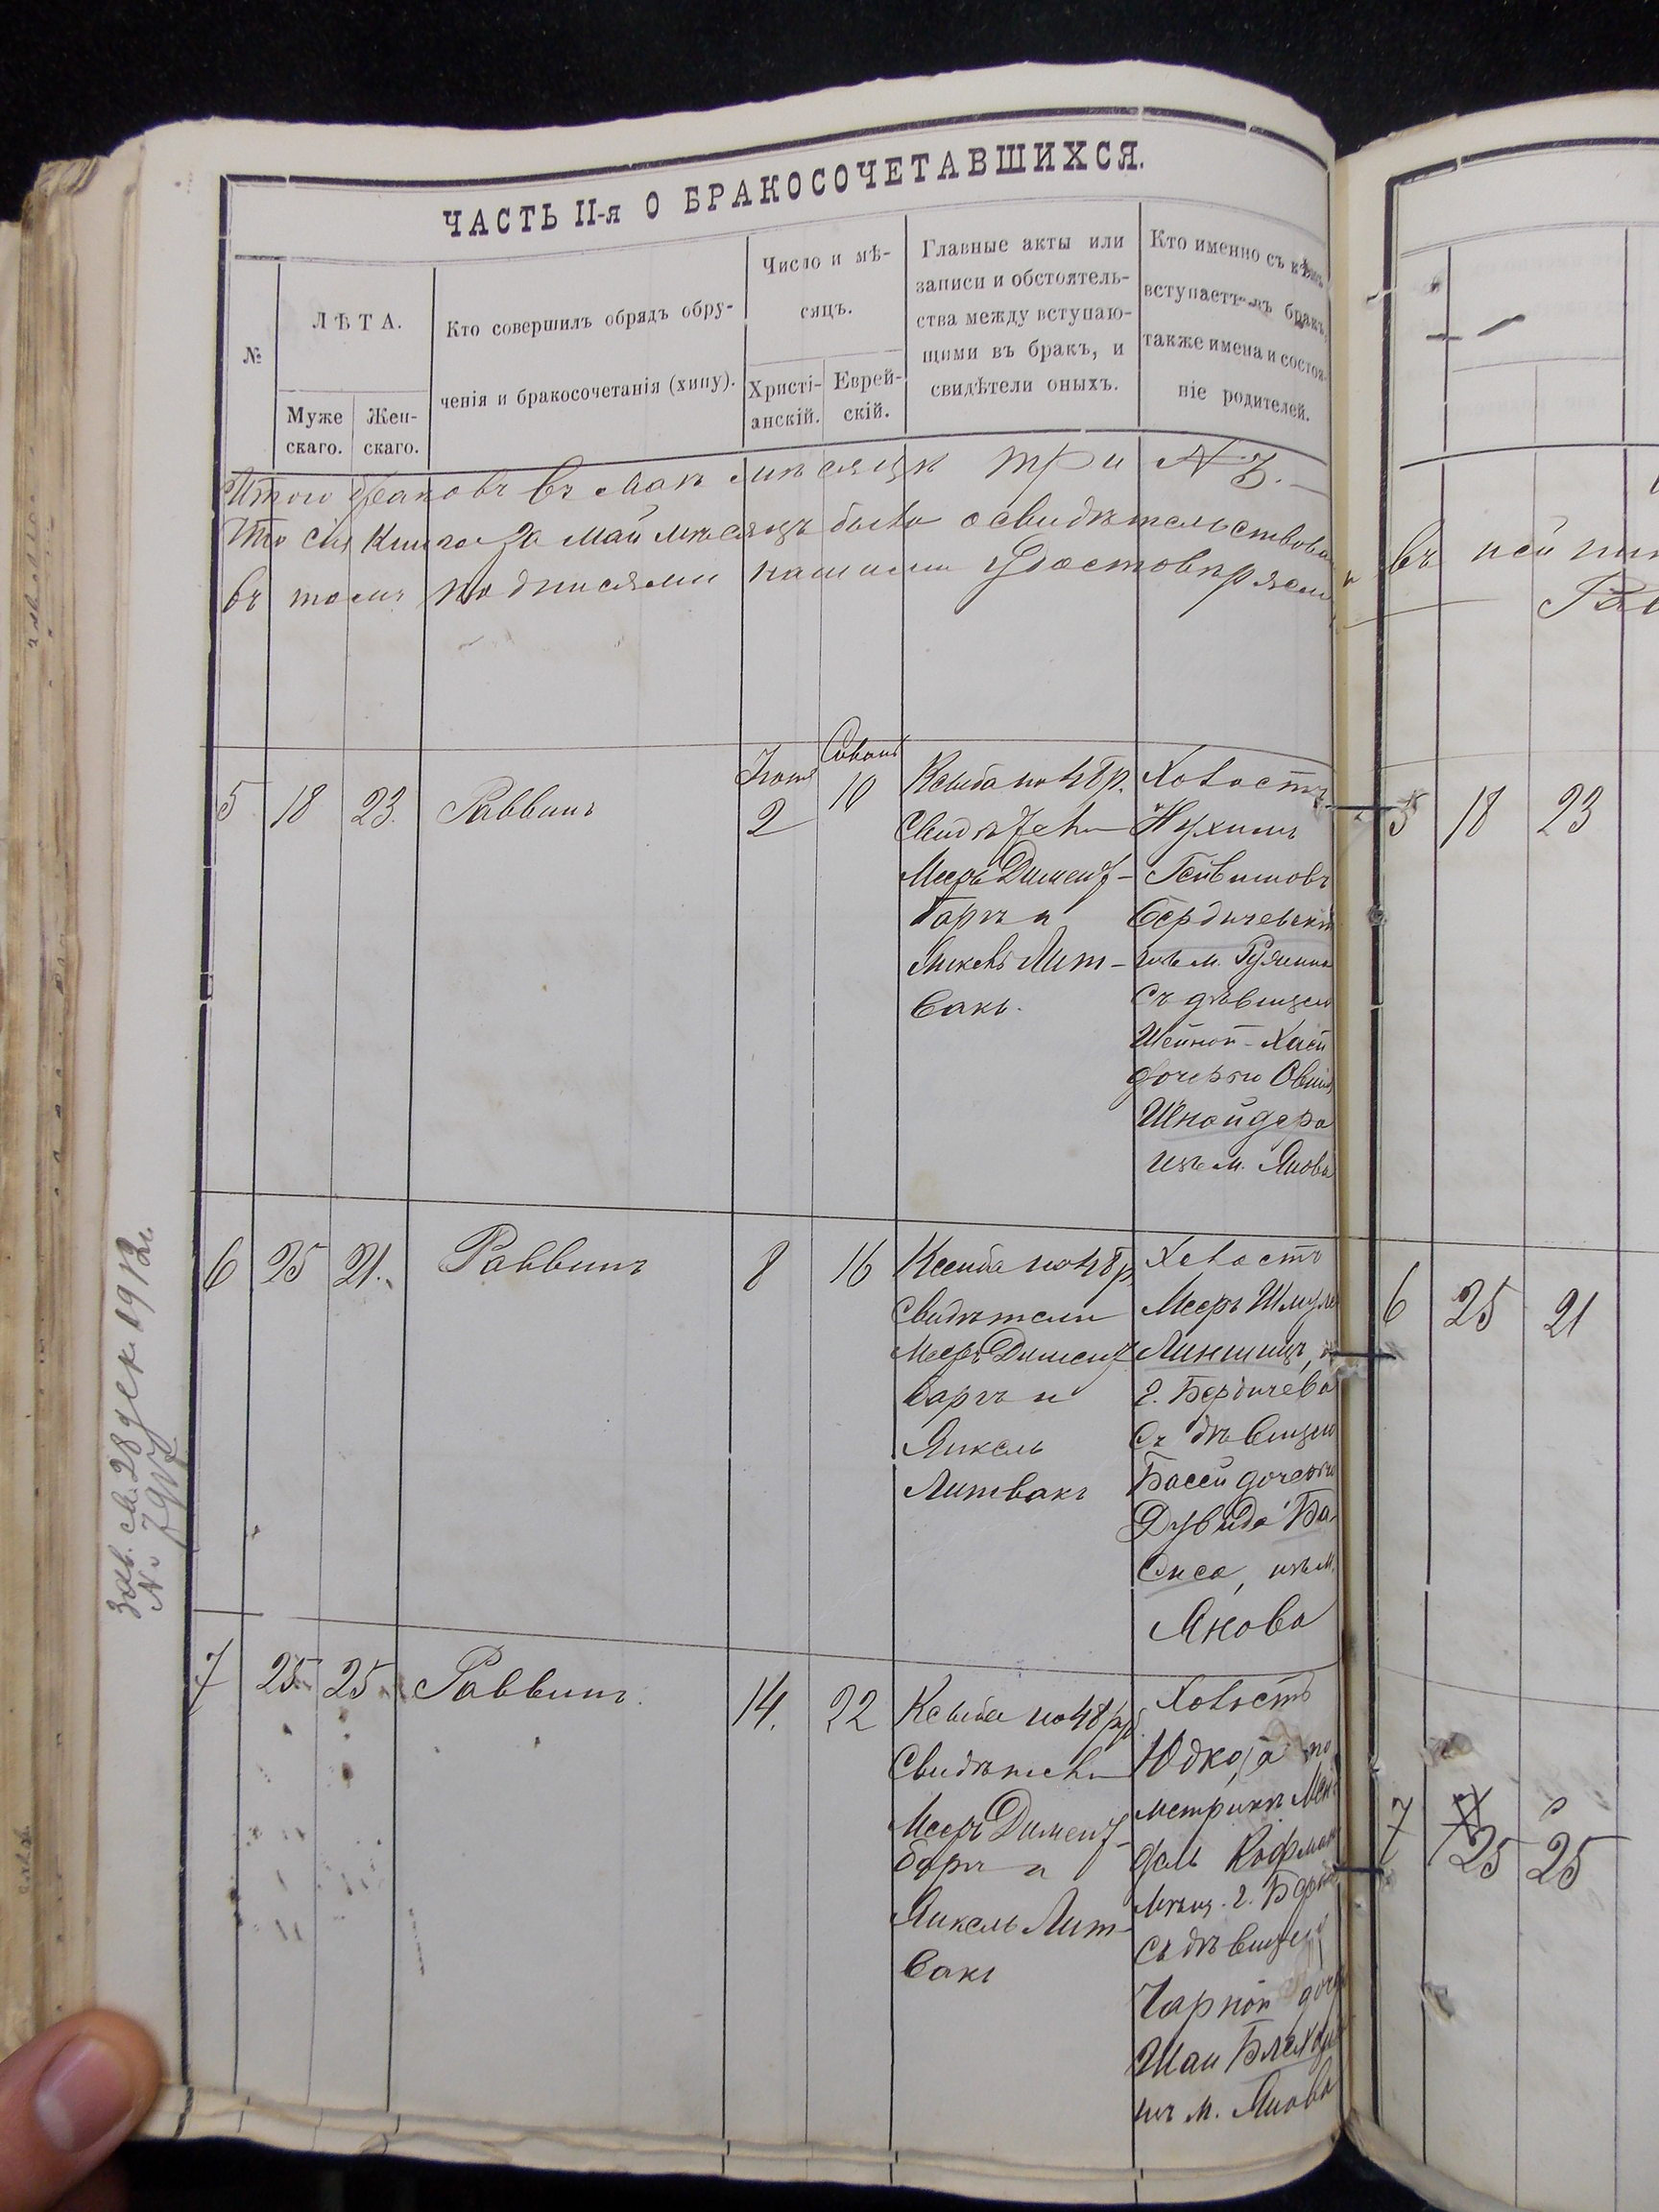 ЧАСТЬ II-я О БРАКОСОЧЕТАВШИХСЯ.
№
ЛѢТА.
Муже
скаго.
Жен-
скаго.
Кто совершилъ обрядъ обру-
ченія и бракосочетанія (хипу).
Число и мѣ-
сяцъ.
Христі-
анскій.
Еврей-
скій.
Главные акты или
записи и обстоятель-
ства между вступаю-
щими въ бракъ, и
свидѣтели оныхъ.
Кто именно съ кѣмъ
вступаетъ въ бракъ,
также имена и состоя-
ніе родителей.
Итого браковъ въ Маѣ мѣсяцѣ три №3.
Что сія книга за май мѣсяцъ была освидѣтельствова
въ томъ подписями нашими удостовѣряемъ
въ ней
5
18
23.
Раввинъ
Іюня
2
Сивонъ
10
Ксыба по 48 р.
Свидѣтели
Мееръ Дименъ-
баргъ и
Янкель Лит-
вакъ.
Холостъ
Нухимъ
Бердичевскій
изъ м.
съ дѣвицею
Шейной-Хаей
дочерью
Шнайдера
изъ м. Янова
5 18 23
6
25
21.
Раввинъ
8
16
Ксыба по 48 р
Свидѣтели
Мееръ Дименъ
баргъ и
Янкель
Литвакъ
Холостъ
Мееръ Шмуль
г. Бердичева
съ дѣвицею
Басей дочерью
Дувида Ба-
сиса, изъ м.
Янова
6 25 21
7
25
25
Раввинъ.
14.
22
Ксыба по 48 руб.
Свидѣтели
Мееръ Дименъ-
баргъ и
Янкель Лит-
вакъ
Холостъ
Юдко, а по
метрикѣ Мен-
дель Кофман
мѣщ. г. Берд
съ дѣвицею
Чарной доч
Шаи
изъ м. Янова
7 25 25
28 дек. 1912 г.
№